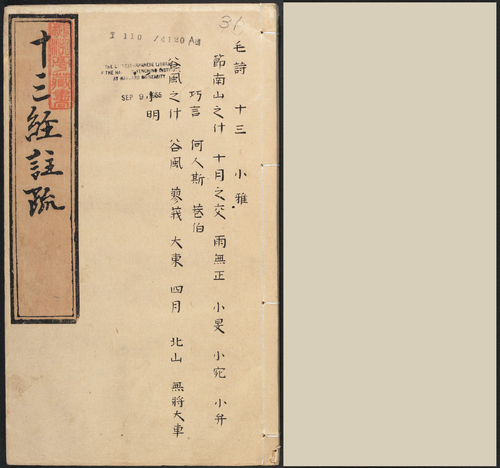 31
毛詩 十三 小雅
節南山之什 十月之交 雨無正 小旻 小宛 小弁
巧言 何人斯 巷伯
谷風之什 谷風 蓼莪 大東 四月 北山 無將大車
小明
十三經註疏
AT HARVARD UNIVERSITY
SEP 9